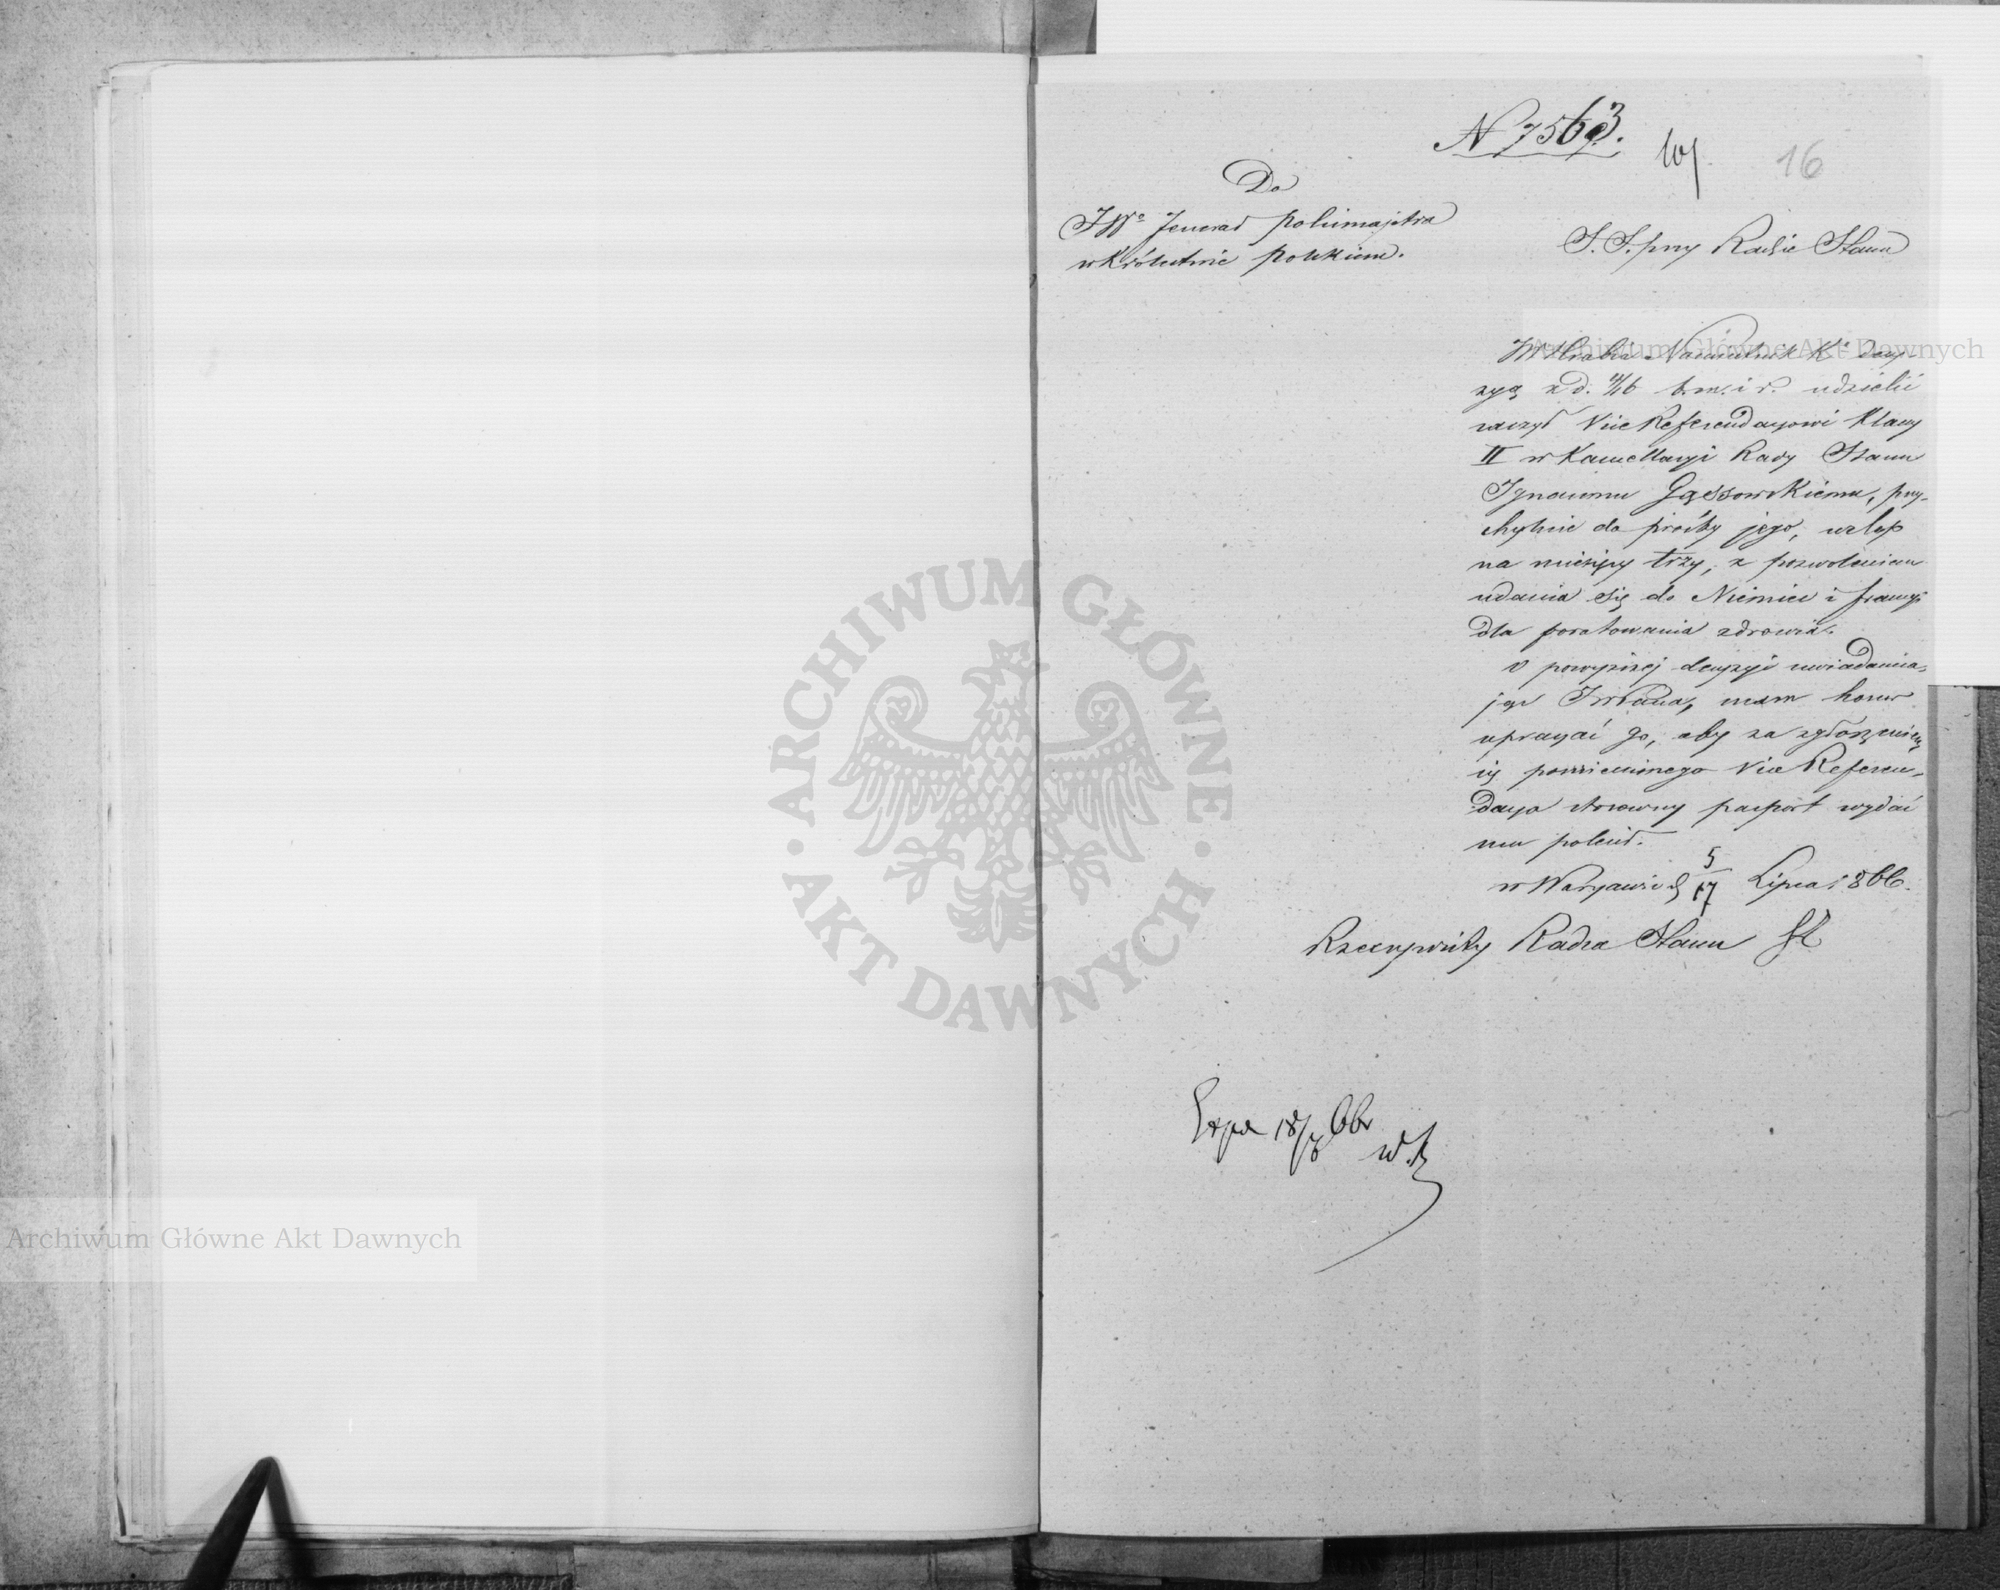 N 7563.
16
Do
JWo Jenerał Policmajstra
w Królestwie Polskiem.
S. S. przy Radzie Stanu
JW Hrabia Namiestnik K. decy-
zyą z d. 4/16 b. m. i r. udzielić
raczył Vice Referendarzowi klassy
II w Kancellaryi Rady Stanu
Ignacemu Gąssowskiému, przy-
chylnie do prośby jego, urlop
na miesięcy trzy, z pozwoleniem
udania się do Niemiec i Francyi
dla poratowania zdrowia.
O powyższej decyzyi uwiadamia-
jąc JWPana, mam honor
upraszać go, aby za zgłoszeniem
się pomienionego Vice Referen-
darza stosowny paszport wydać
mu polecił.
w Warszawie d 5/17 Lipca 1866.
Rzeczywisty Radca Stanu
Exped 18/7 66r
ARCHIWUM GŁÓWNE AKT DAWNYCH
Archiwum Główne Akt Dawnych
Archiwum Główne Akt Dawnych